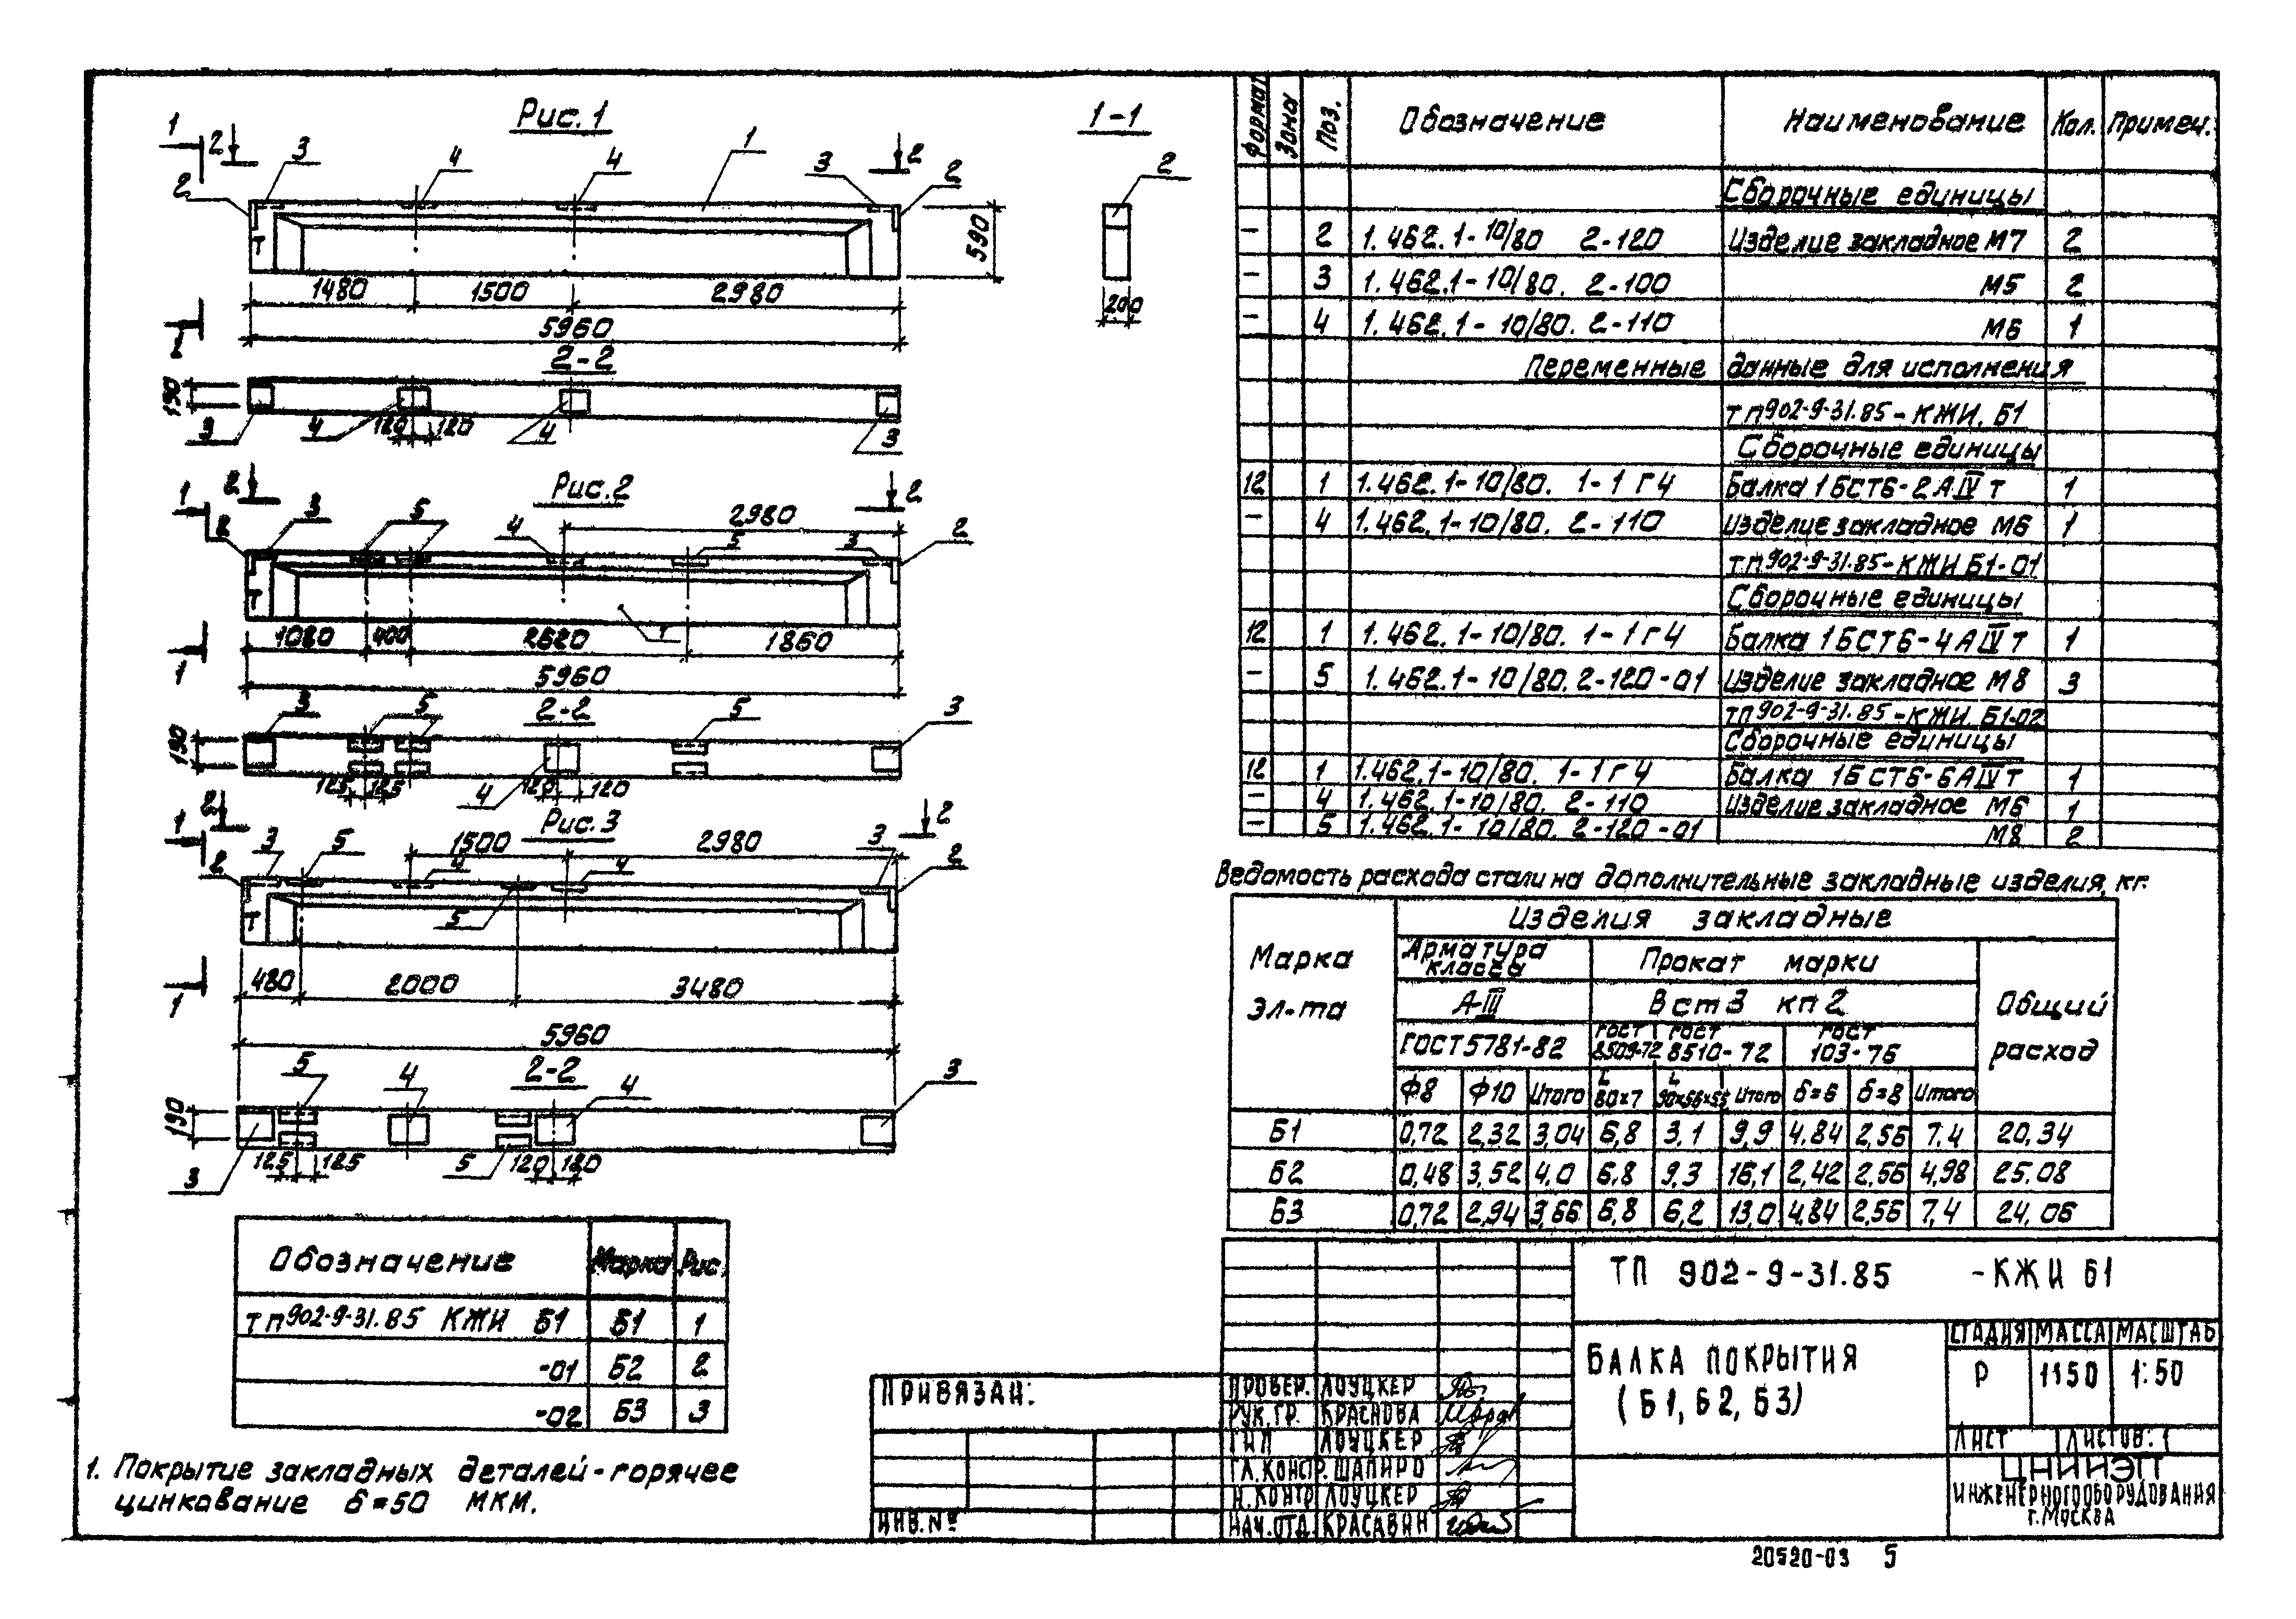 Рис. 1
1-1
1 2 3 4 4 1 3 2 2
2 2
590
1480 1500 2980
200
5960
1
2-2
190
3 4 120 120 4 3
Рис. 2
1 2 3 5 4 2980 2
2 5 3 2
1080 400 2620 1860
1
5960
3 5 2-2 5 3
190
125 125 4 120 120
Рис. 3
1 2 1500 2980 2
2 3 5 4 4 3 2
5
480 2000 3480
1
5960
5 4 2-2 4 3
190
125 125 5 120 120
3
Обозначение Марка Рис.
ТП 902-9-31.85 КЖИ Б1 Б1 1
-01 Б2 2
-02 Б3 3
1. Покрытие закладных деталей - горячее
цинкование б=50 мкм.
Формат Зона Поз. Обозначение Наименование Кол. Примеч.
Сборочные единицы
- 2 1.462.1-10/80 2-120 Изделие закладное М7 2
- 3 1.462.1-10/80. 2-100 М5 2
- 4 1.462.1-10/80. 2-110 М6 1
Переменные данные для исполнения
ТП 902-9-31.85-КЖИ. Б1
Сборочные единицы
12 1 1.462.1-10/80. 1-1 Г4 Балка 1БСТ6-2АIVТ 1
- 4 1.462.1-10/80. 2-110 Изделие закладное М6 1
ТП 902-9-31.85-КЖИ Б1-01
Сборочные единицы
12 1 1.462.1-10/80. 1-1 Г4 Балка 1БСТ6-4АIVТ 1
- 5 1.462.1-10/80. 2-120-01 Изделие закладное М8 3
ТП 902-9-31.85-КЖИ. Б1-02
Сборочные единицы
12 1 1.462.1-10/80. 1-1 Г4 Балка 1БСТ6-6АIVТ 1
- 4 1.462.1-10/80. 2-110 Изделие закладное М6 1
- 5 1.462.1-10/80. 2-120-01 М8 2
Ведомость расхода стали на дополнительные закладные изделия, кг.
Марка эл-та
Изделия закладные
Арматура класса
Прокат марки
А-III
Вст3 кп2
Общий расход
ГОСТ 5781-82
ГОСТ 8509-72
ГОСТ 8510-72
ГОСТ 103-76
Ф8 Ф10 Итого L 80×7 L 90×56×5,5 Итого б=6 б=8 Итого
Б1 0,72 2,32 3,04 6,8 3,1 9,9 4,84 2,56 7,4 20,34
Б2 0,48 3,52 4,0 6,8 9,3 16,1 2,42 2,56 4,98 25.08
Б3 0,72 2,94 3,66 6,8 6,2 13,0 4,84 2,56 7,4 24,06
ТП 902-9-31.85 -КЖИ Б1
БАЛКА ПОКРЫТИЯ
(Б1, Б2, Б3)
СТАДИЯ МАССА МАСШТАБ
Р 1150 1:50
ЛИСТ ЛИСТОВ: 1
ЦНИИЭП
ИНЖЕНЕРНОГО ОБОРУДОВАНИЯ
г. МОСКВА
ПРИВЯЗАН:
ИНВ. №
ПРОВЕР. ЛОУЦКЕР
РУК. ГР. КРАСНОВА
ГИП ЛОУЦКЕР
ГЛ. КОНСТР. ШАПИРО
Н. КОНТР ЛОУЦКЕР
НАЧ. ОТД. КРАСАВИН
20520-03 5